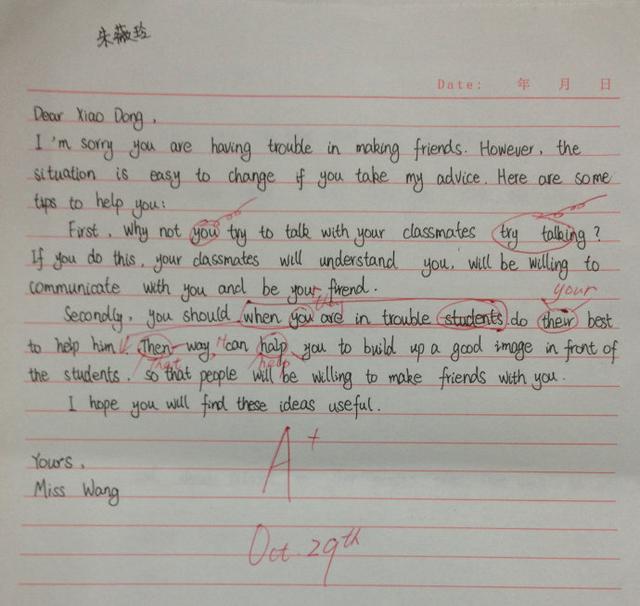 朱薇玲
Date: 年 月 日
Dear Xiao Dong,
I'm sorry you are having trouble in making friends. However, the
situation is easy to change if you take my advice. Here are some
tips to help you:
First, why not you try to talk with your classmates try talking?
If you do this, your classmates will understand you, will be willing to
communicate with you and be your friend.
your
they
Secondly, you should when you are in trouble students do their best
to help him. Then way, can halp you to build up a good image in front of
that help
the students, so that people will be willing to make friends with you.
I hope you will find these ideas useful.
A+
Yours,
Miss Wang
Oct. 29th